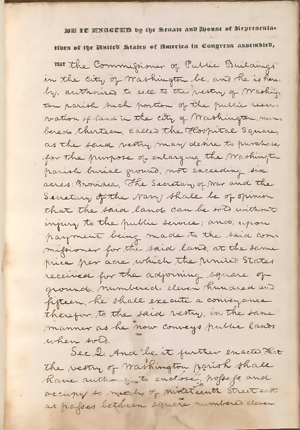 BE IT ENACTED by the Senate and House of Representa-
tives of the United States of America in Congress assembled,
THAT the Commissioner of Public Buildings
in the City of Washington be, and he is here
by, authorized to sell to the vestry of Washing
ton parish such portion of the public reser-
vation of land in the City of Washington num
bered thirteen, called the Hospital Square,
as the said vestry may desire to purchase,
for the purpose of enlarging the Washington
parish burial ground, not exceeding six
acres: Provided, The Secretary of War and the
Secretary of the Navy shall be of opinion
that the said land can be sold without
injury to the public service; and, upon
payment being made to the said com
missioner for the said land, at the same
price per acre which the United States
received for the adjoining square of
ground numbered eleven hundred and
fifteen, he shall execute a conveyance
therefor to the said vestry, in the same
manner as he now conveys public lands
when sold.
Sec. 2. And be it further enacted, That
the vestry of Washington parish shall
have authority to enclose, possess and
occupy so much of nineteenth street east
as passes between square numbered eleven